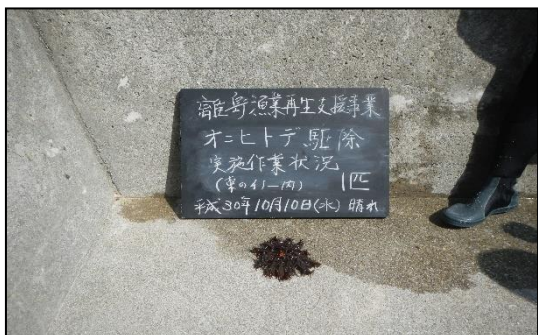 離島漁業再生支援事業
オニヒトデ駆除
実施作業状況
1匹
平成30年10月10日(水) 晴れ